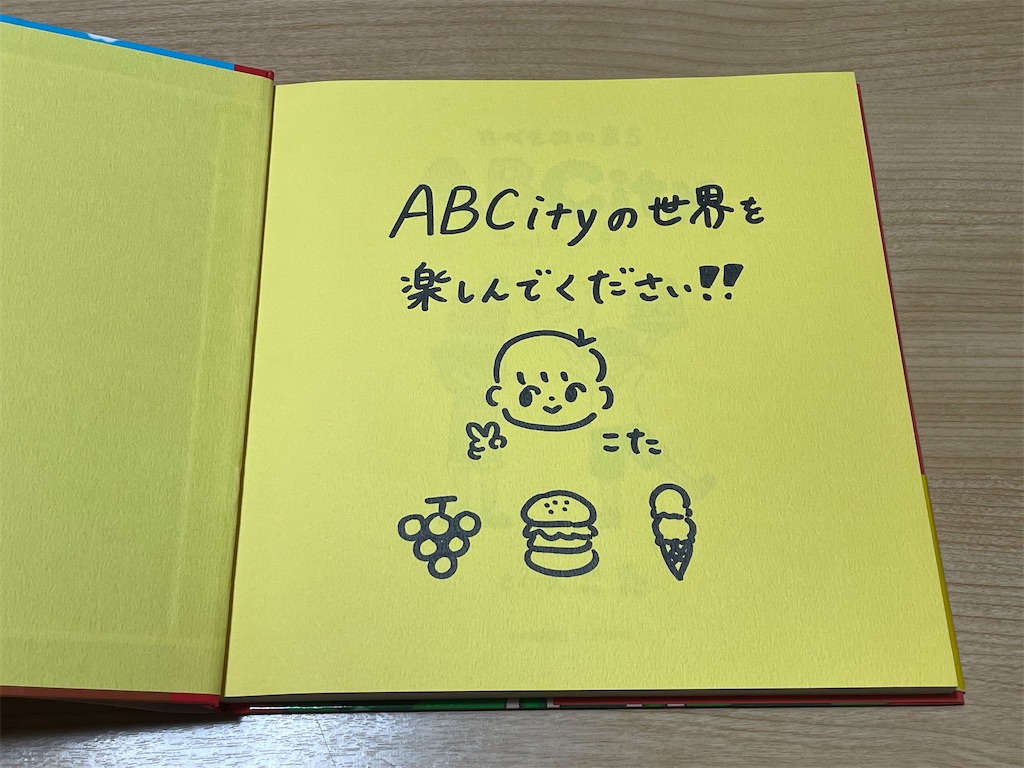 ABCityの世界を
楽しんでください!!
こた